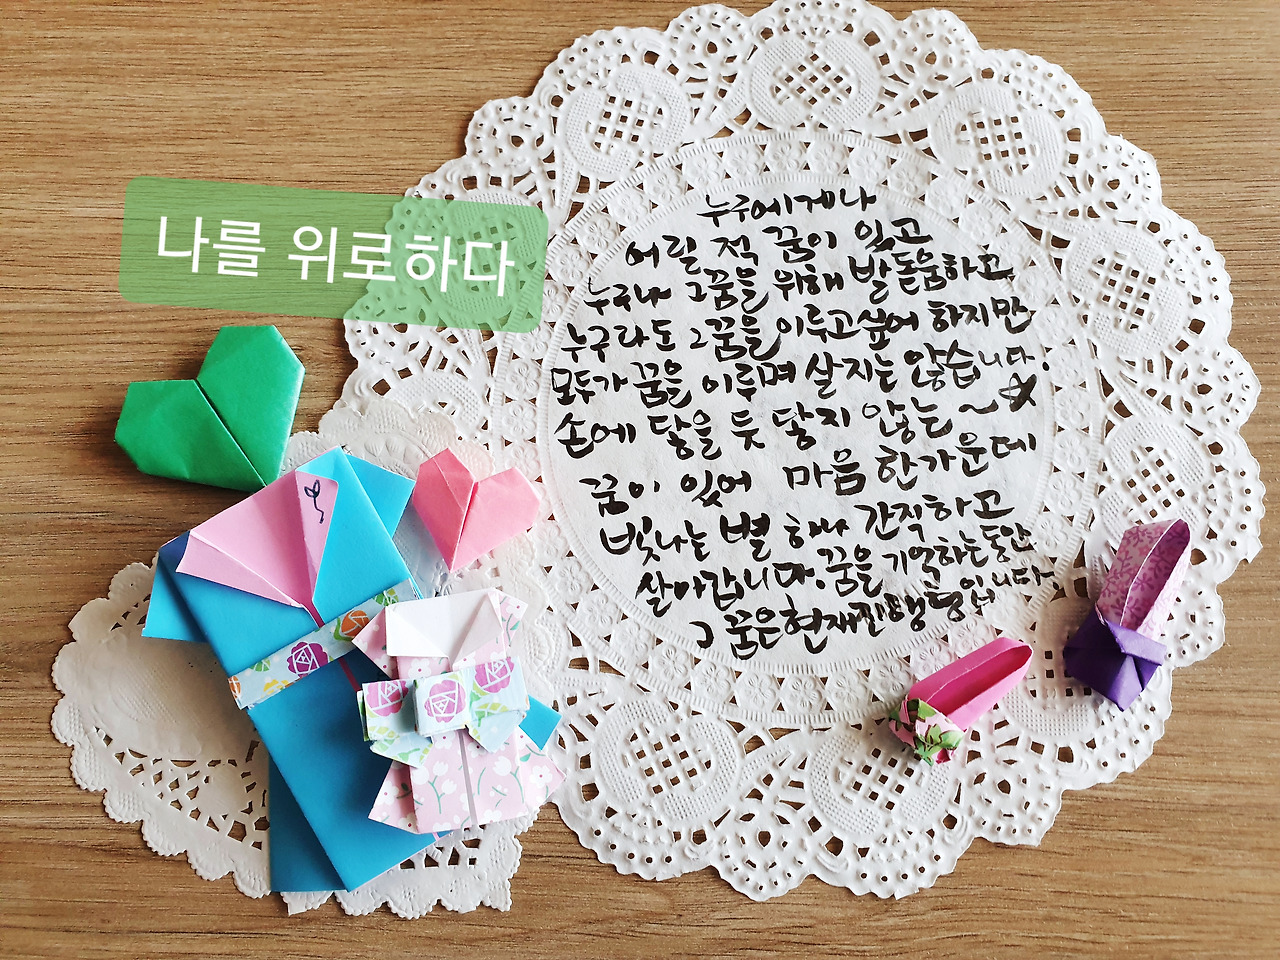 나를 위로하다
누구에게나
어릴 적 꿈이 있고
누구나 그꿈을 위해 발돋움하고
누구라도 그꿈을 이루고싶어 하지만
모두가 꿈을 이루며 살지는 않습니다.
손에 닿을 듯 닿지 않는~
꿈이 있어 마음 한가운데
빛나는 별 하나 간직하고
살아갑니다. 꿈을 기억하는동안
그 꿈은 현재진행형입니다.